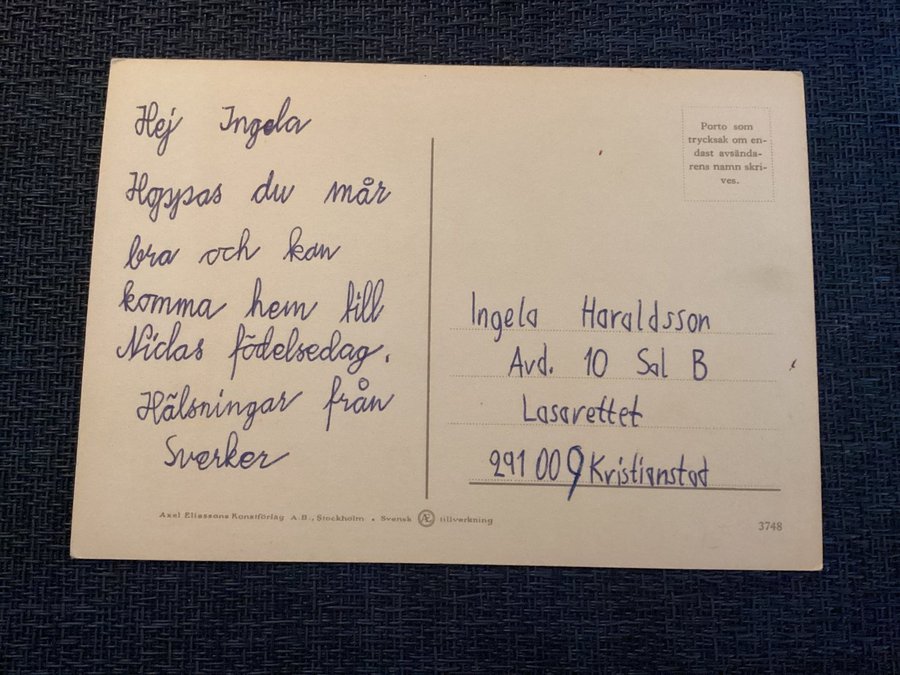 Hej Ingela
Hoppas du mår
bra och kan
komma hem till
Niclas födelsedag.
Hälsningar från
Sverker
Porto som
trycksak om en-
dast avsända-
rens namn skri-
ves.
Ingela Haraldsson
Avd. 10 Sal B
Lasarettet
291 009 Kristianstad
Axel Eliassons Konstförlag A.B., Stockholm • Svensk Æ tillverkning
3748